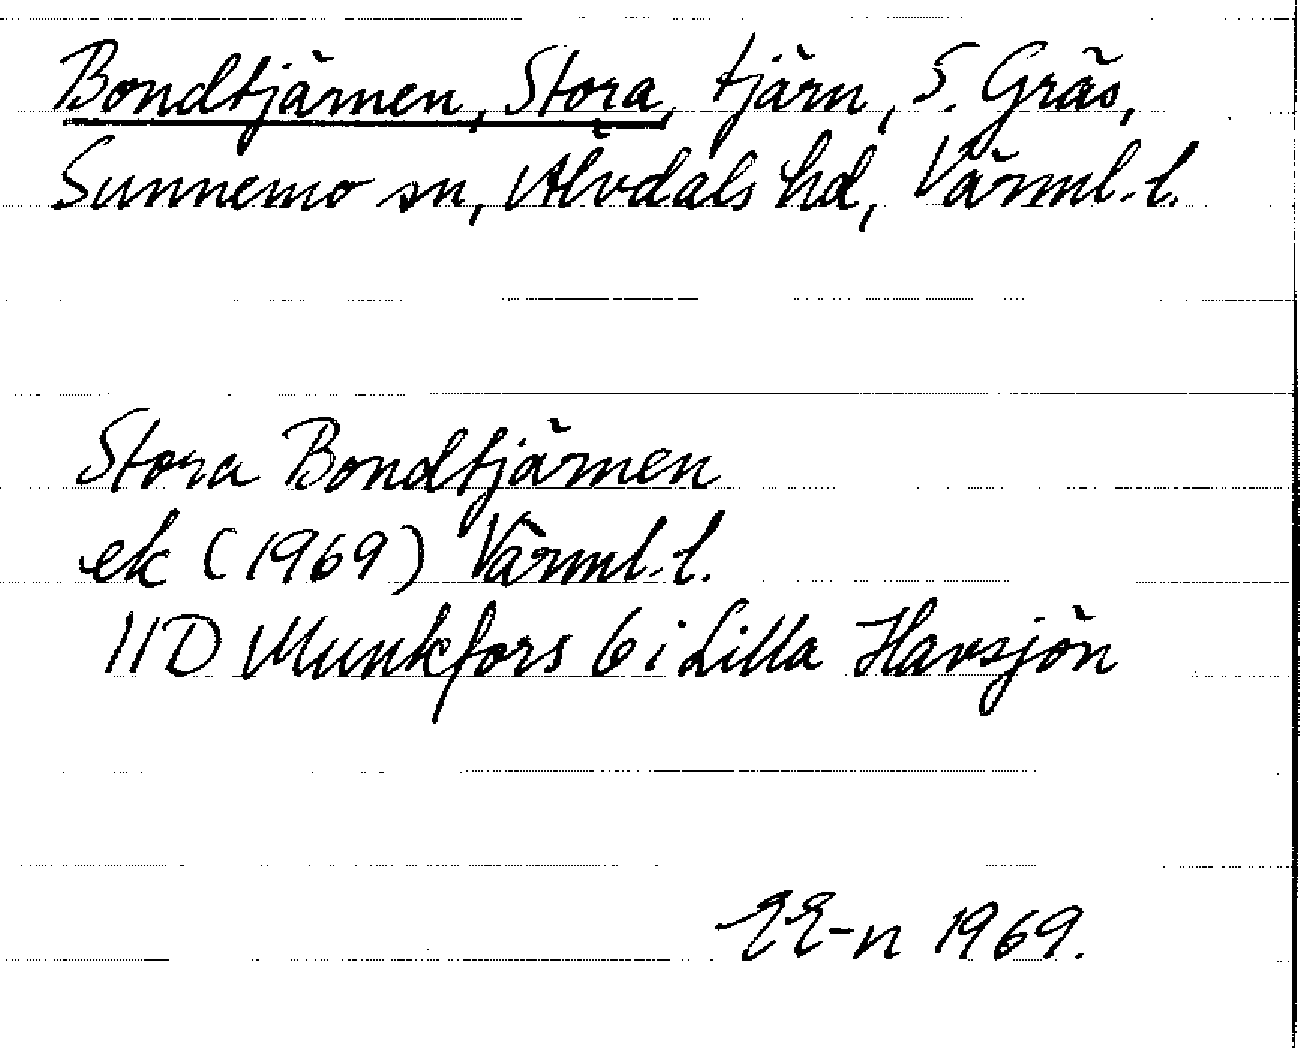 Bondtjärnen, Stora, tjärn, S. Gräs,
Sunnemo sn, Älvdals hd, Värml. l.
Stora Bondtjärnen
ek (1969) Värml. l.
11D Munkfors 6 i Lilla Havsjön
EE-n 1969.